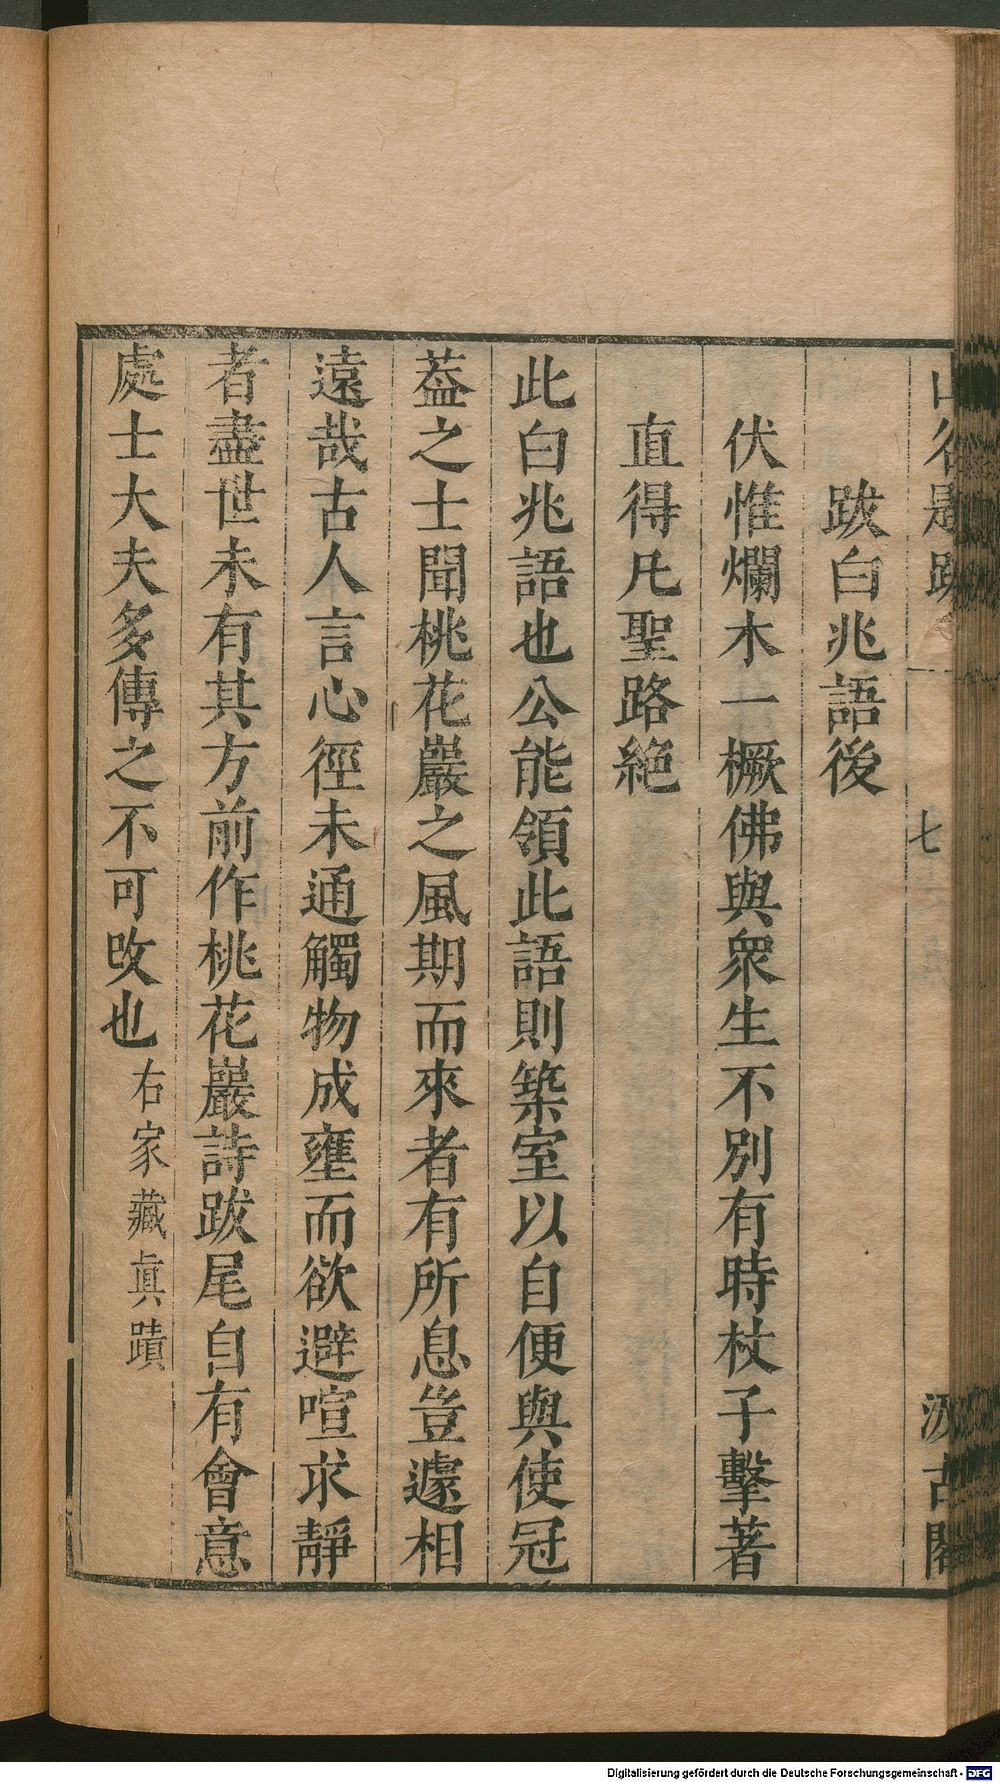 跋白兆語後
伏惟爛木一橛佛與衆生不別有時杖子擊著
直得凡聖路絶
此白兆語也公能領此語則築室以自便與使冠
葢之士聞桃花巖之風期而來者有所息豈遽相
遠哉古人言心徑未通觸物成壅而欲避喧求靜
者盡世未有其方前作桃花巖詩跋尾自有會意
處士大夫多傳之不可改也 右家藏眞蹟
山谷題跋 七 汲古閣
Digitalisierung gefördert durch die Deutsche Forschungsgemeinschaft - DFG